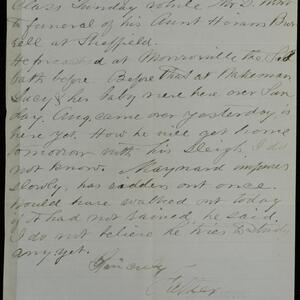 Class Sunday while Mr D. went
to funeral of his Aunt Honam Bur
sell at Sheffield.
He preached at Monroeville the Sab
bath before. Before that at Wakeman
Lucy & her baby were here over Sun
day. Aug. came over yesterday, is
here yet. How he will get home
tomorrow with his Sleigh, I do
not know. Maynard improves
slowly, has ridden out once.
Would have walked out today
if it had not rained, he said.
I do not believe he tries to study
any yet.
Sincerely